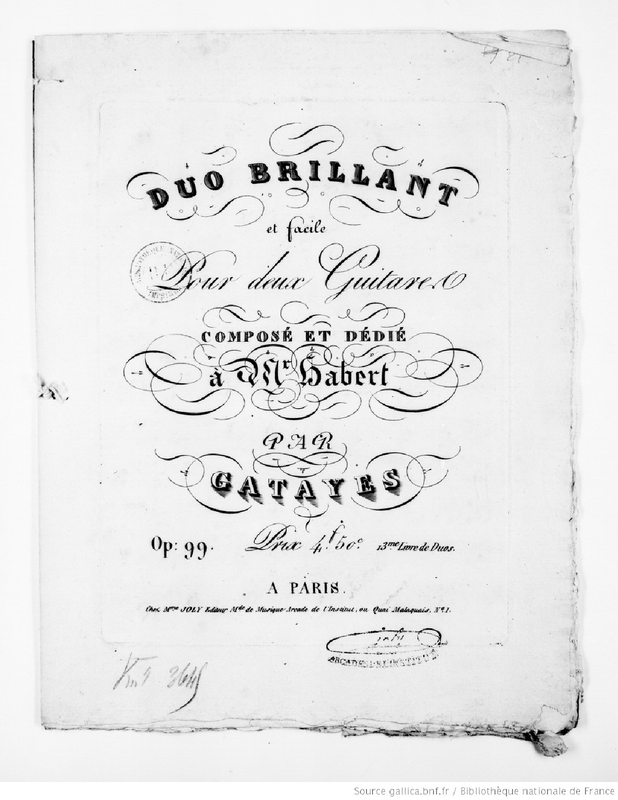 DUO BRILLANT
et facile
Pour deux Guitares
COMPOSÉ ET DÉDIÉ
à Mr. Habert
PAR
GATAYES
Op: 99. Prix 4f 50c. 13me Livre de Duos.
A PARIS.
Chez Mme JOLY Editeur Mde de Musique Arcade de l'Institut, ou Quai Malaquais, No 1.
Source gallica.bnf.fr / Bibliothèque nationale de France